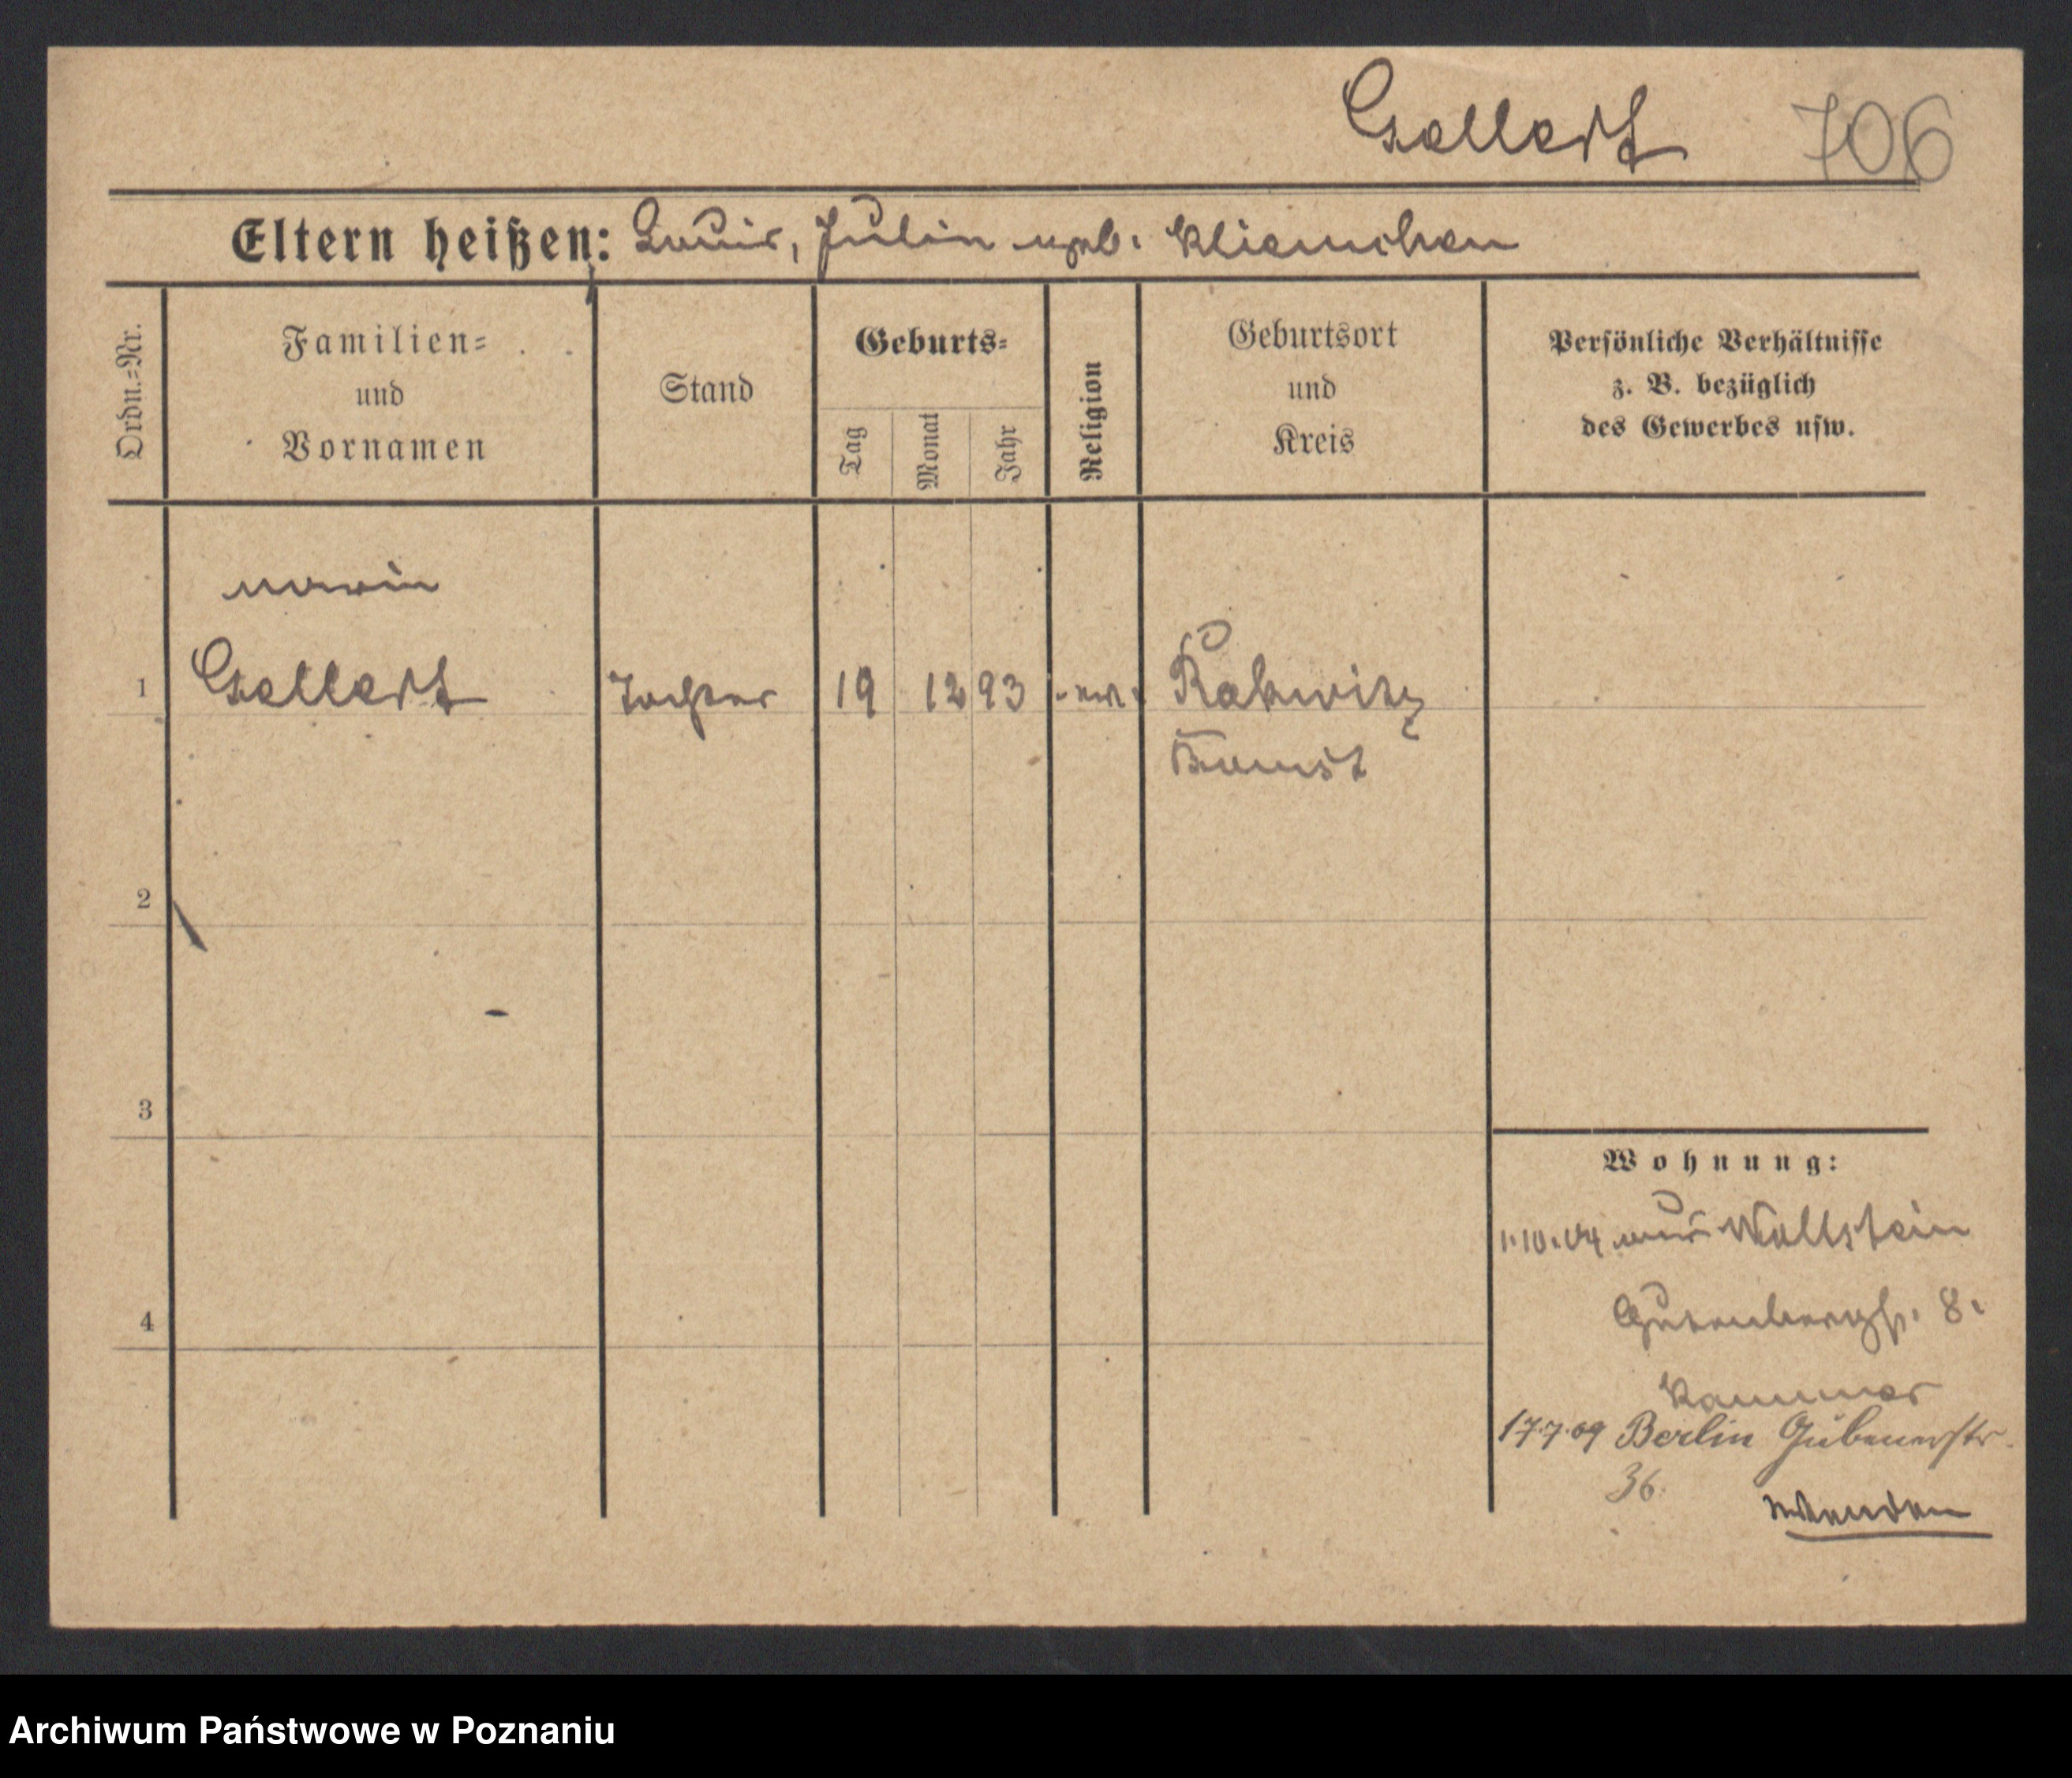 Gellert 706
Eltern heißen: Louis, Julia geb. Kliemchen
Ordn.-Nr.
Familien-
und
Vornamen
Stand
Geburts-
Tag
Monat
Jahr
Religion
Geburtsort
und
Kreis
Persönliche Verhältnisse
z. B. bezüglich
des Gewerbes usw.
Maria
1 Gellert Tochter 19 12 93 ev. Rakwitz
Bomst
2
3
4
Wohnung:
1.10.04 aus Wollstein
Gutenbergstr. 8.
Kammer
17.7.09 Berlin Gubenerstr.
36.
wenden
Archiwum Państwowe w Poznaniu